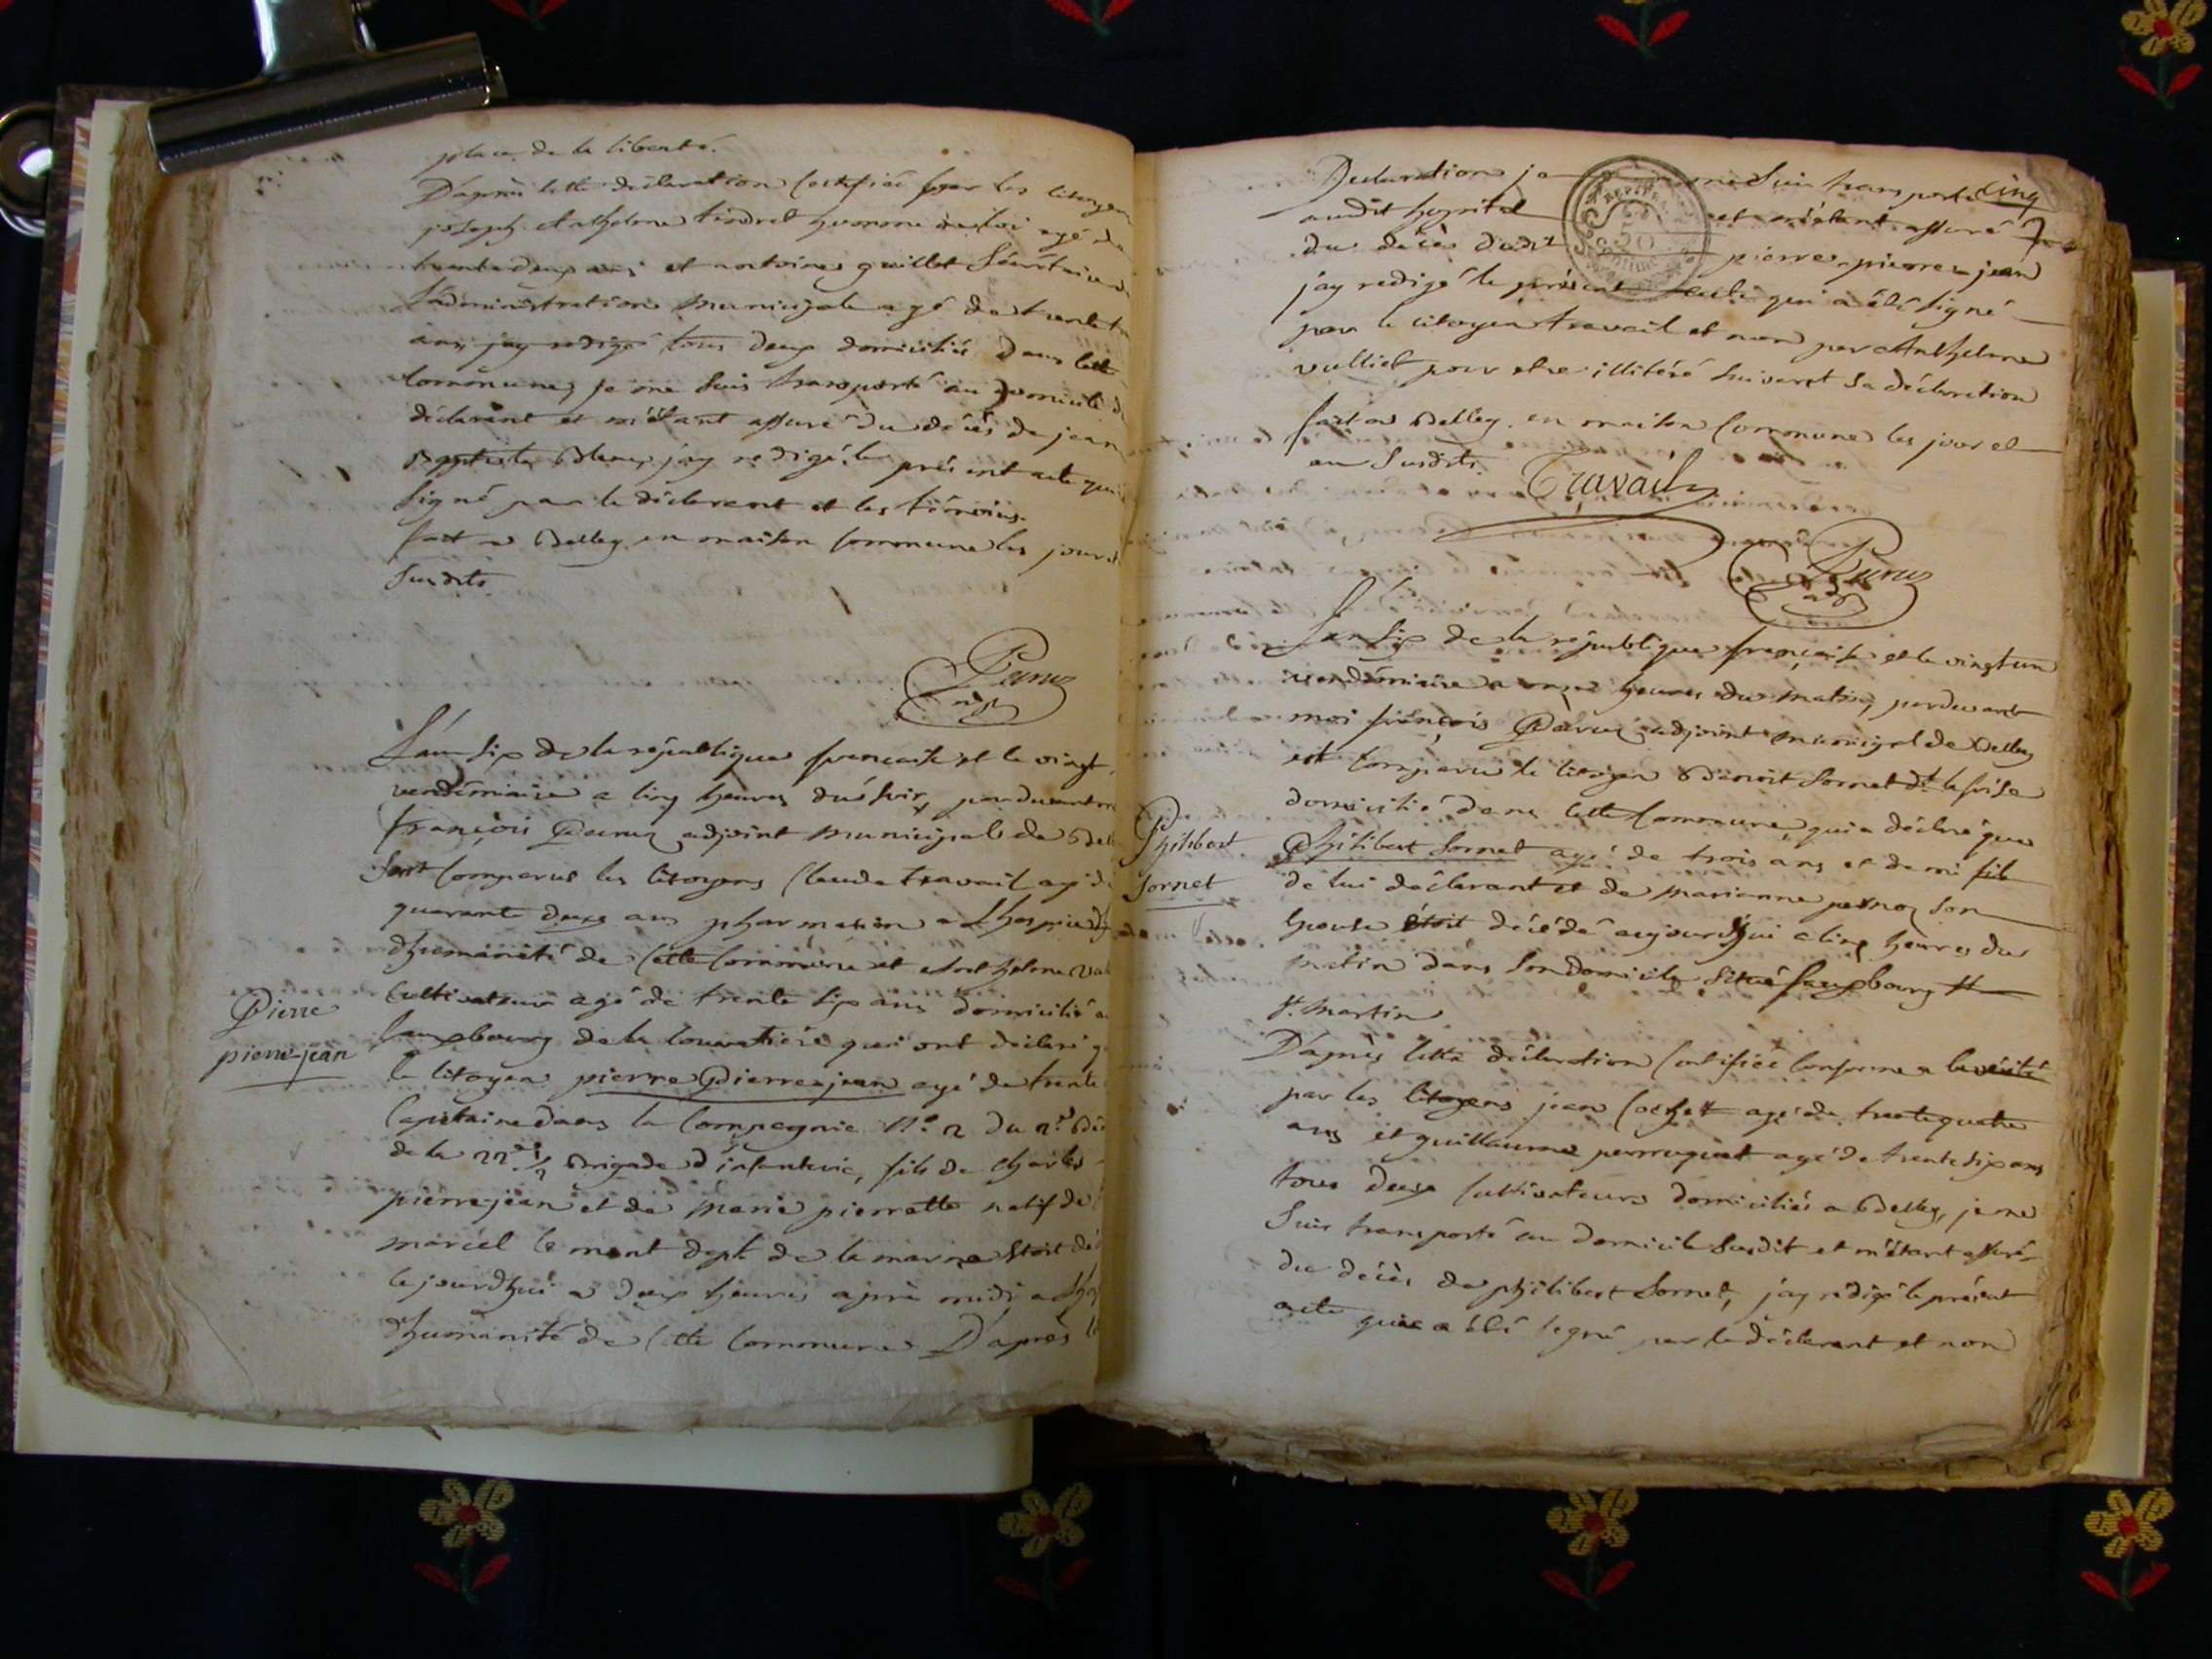 place de la liberté.
D'après cette déclaration certifiée par les citoyens
joseph Anthelme tendret homme de loi agé de
trente deux ans et antoine guillot Sécrétaire de
L'administration municipale agé de trente
ans, jay redigé tous deux domiciliés dans cette
Commune, je me suis transporté au domicile d
déclarant et m'étant assuré du décès de jean
Baptiste jay redigé le présent acte qui
signé par le déclarant et les témoins.
fait a Belley en maison Commune les jour et
Susdits.
Parra
adj
L'an six de la république francaise et le vingt
vendémiaire a cinq heures du soir, pardevant m
françois Parra adjoint municipal de Bell
sont comparus les citoyens Claude travail agé d
quarante deux ans pharmacien a Lhospice
dhumanité de cette Commune et Anthelme
Cultivateur agé de trente six ans domicilié a
fauxbourg de la qui ont déclaré q
le citoyen pierre Pierre-jean agé de trente
Capitaine dans la Compagnie N.º 2 du 2.e
de la 22.e ½ Brigade d'infanterie, fils de Charles
pierre-jean et de marie pierrette natif de
marcel le mont dept. de la marne étoit dé
le jourdhui a deux heures après midi a Lho
d'humanité de cette Commune D'après
Pierre
pierre-jean
Cinq
Declaration je me suis transporté
audit hopital et m'étant assuré
du décès dudit pierre pierre-jean
jay redigé le présent acte qui a été signé
par le citoyen travail et non par Anthelme
vulliet pour etre illitéré suivant sa déclaration
fait a Belley en maison Commune les jour et
an susdits.
Travail
Parra
adj
L'an six de la république française et le vingt un
vendémiaire a onze heures du matin, pardevant
moi françois Parra adjoint municipal de Belley
est comparu le citoyen Benoit Sornet dt.
domicilié dans cette Commune, qui a déclaré que
Philibert Sornet agé de trois ans et demi fils
de lui déclarant et de marianne son
épouse étoit décédé aujourdhui a cinq heures du
matin dans son domicile situé fauxbourg
St. martin
D'après cette déclaration certifiée conforme a la vérité
par les citoyens jean agé de trente quatre
ans et guillaume perruquet agé de trente six ans
tous deux cultivateurs domiciliés a Belley, je me
suis transporté au domicile susdit et m'étant assuré
du décès de philibert Sornet, jay redigé le présent
acte qui a été signé par le déclarant et non
Philibert
Sornet